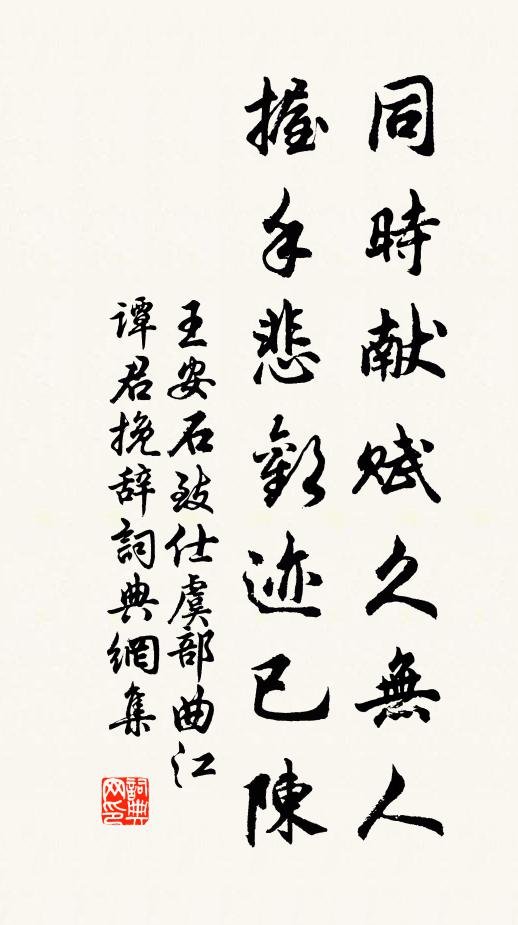 同時献賦久無人
握手悲歡迹已陳
王安石致仕虞部曲江
谭君挽辞詞典網集
詞典
网印